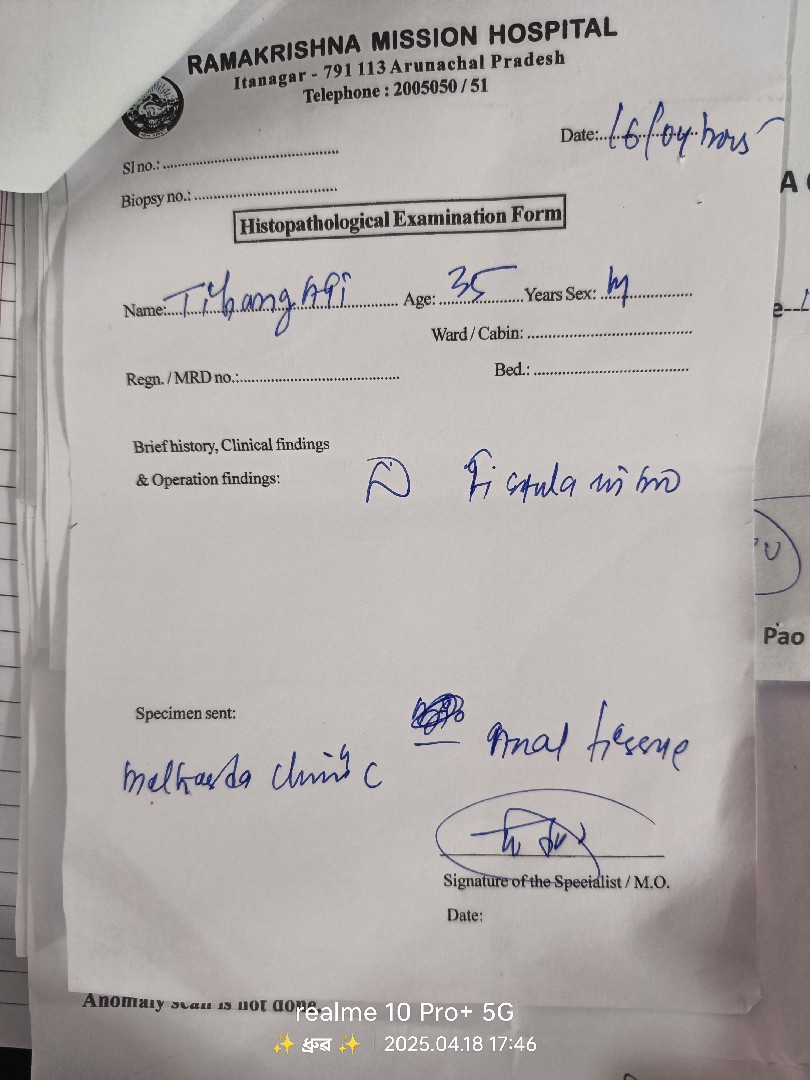 RAMAKRISHNA MISSION HOSPITAL
Itanagar - 791 113 Arunachal Pradesh
Telephone : 2005050 / 51
Date: 16/04/2025
Sl no.:
Biopsy no.:
Histopathological Examination Form
Name: Age: 35 Years Sex: M
Ward / Cabin:
Regn. / MRD no.: Bed.:
Brief history, Clinical findings
& Operation findings: Fistula in ano
Specimen sent: Anal tissue
clinic
Signature of the Specialist / M.O.
Date:
Pao
Anomaly scan is not done.
realme 10 Pro+ 5G
✨ ধ্রুব ✨ 2025.04.18 17:46